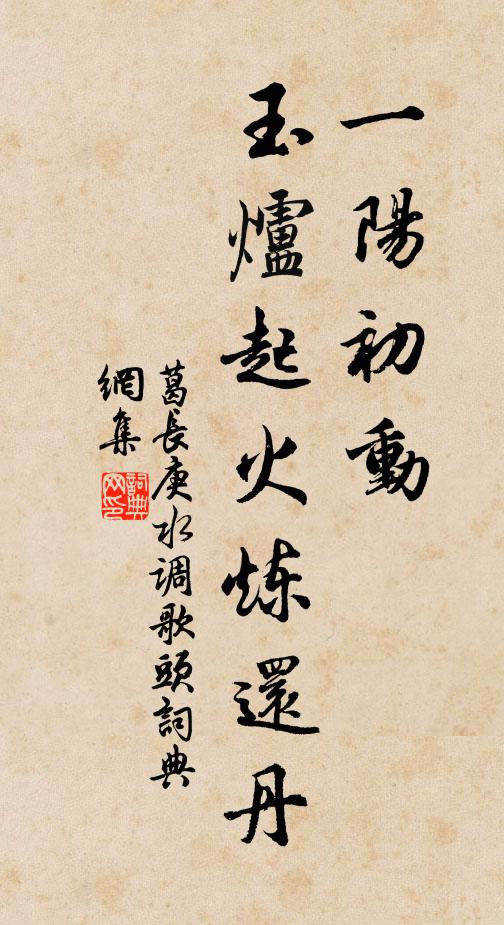 一陽初動
玉爐起火炼還丹
葛長庚水调歌頭詞典
網集
詞典
网印